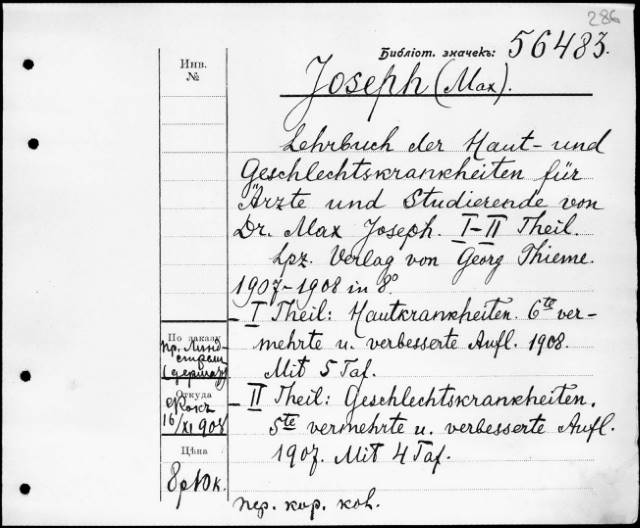 286
Библіот. значекъ: 56483.
Инв.
№
Joseph (Max).
Lehrbuch der Haut- und
Geschlechtskrankheiten für
Ärzte und Studierende von
Dr. Max Joseph. I-II Theil.
Lpz. Verlag von Georg Thieme.
1907-1908 in 8°
- I Theil: Hautkrankheiten. 6te ver-
mehrte u. verbesserte Aufl. 1908.
Mit 5 Taf.
- II Theil: Geschlechtskrankheiten.
5te vermehrte u. verbesserte Aufl.
1907. Mit 4 Taf.
пер. кор. кол.
По заказу
пр. Линд-
стрем
Откуда
16/XI 908
Цѣна
8р 10к.